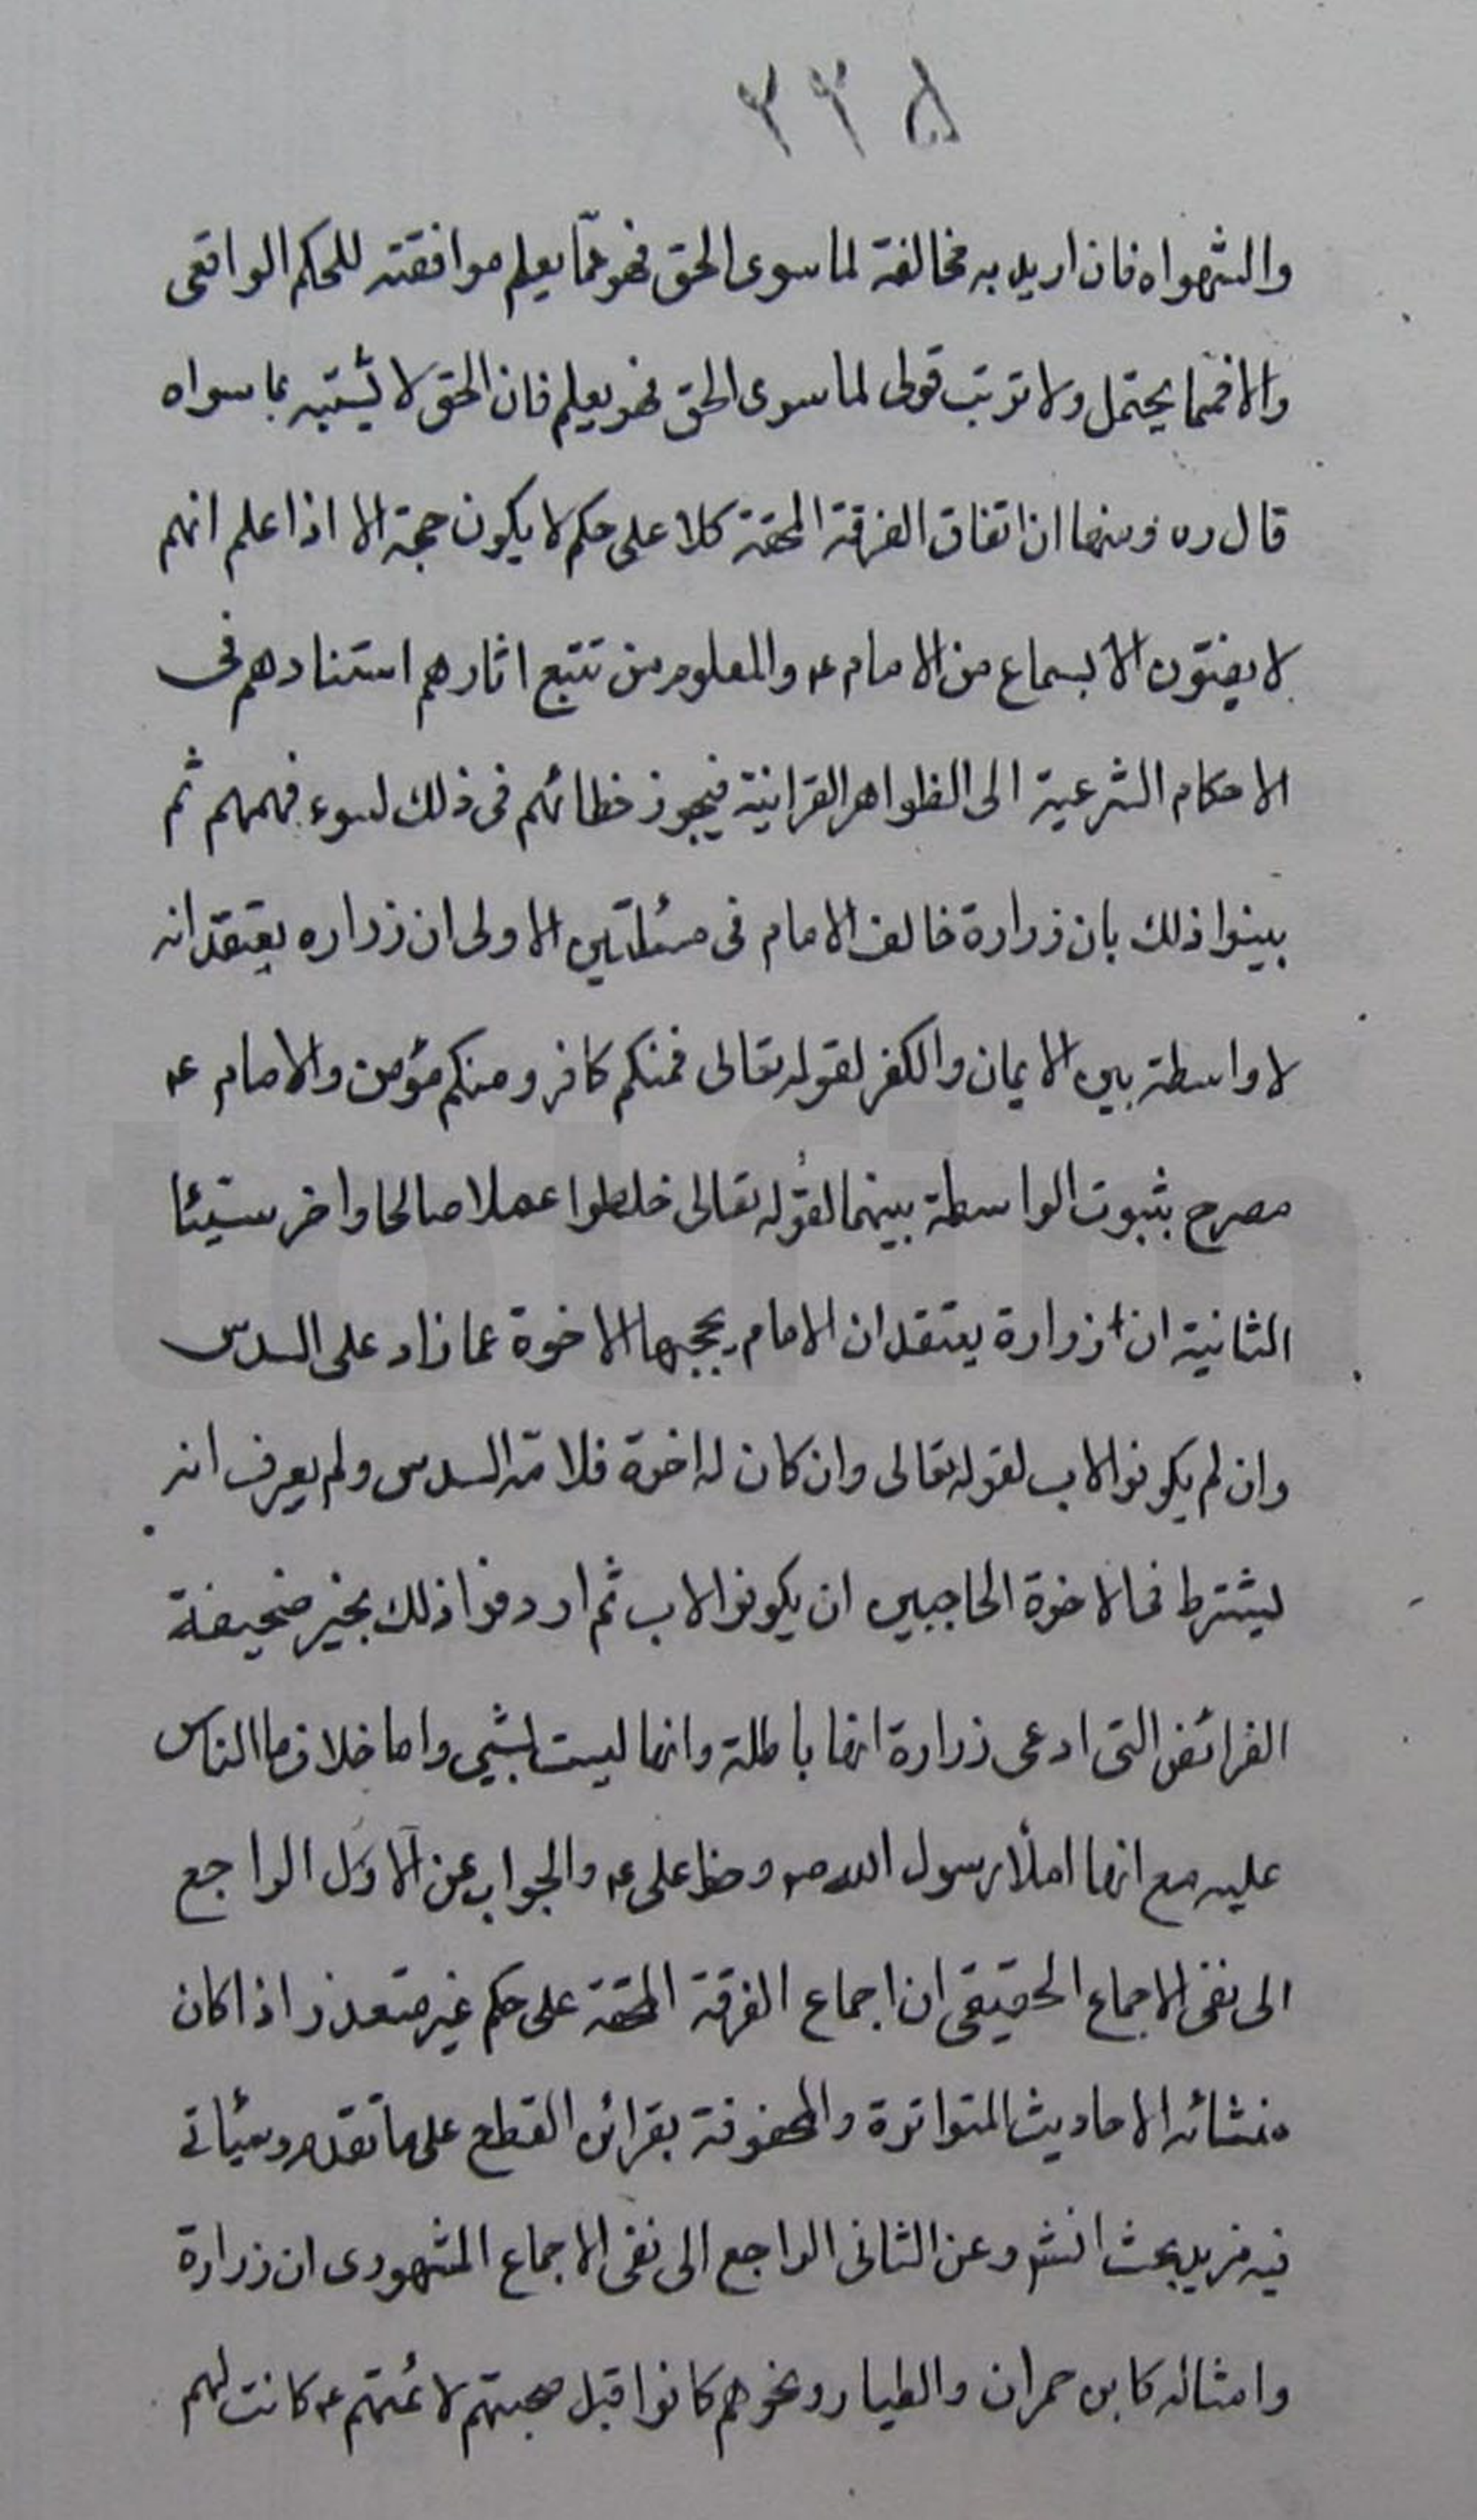 ٣٣٥
والشهواه فان اريد به مخالفة لما سوى الحق فهو مما يعلم موافقته للحكم الواقعى
والا فمما يحتمل ولا ترتب قولى لما سوى الحق فهو يعلم فان الحق لا يشتبه بما سواه
قال ره ومنها ان اتفاق الفرقة المحقة كلا على حكم لا يكون حجة الا اذا علم انهم
لا يفتون الا بسماع من الامام ع والمعلوم من تتبع اثارهم استنادهم فى
الاحكام الشرعية الى الظواهر القرانية فيجوز خطائهم فى ذلك لسوء فهمهم ثم
بينوا ذلك بان زرارة خالف الامام فى مسئلتين الاولى ان زراره يعتقد انه
لا واسطة بين الايمان والكفر لقوله تعالى فمنكم كافر ومنكم مؤمن والامام ع
مصرح بثبوت الواسطة بينهما لقوله تعالى خلطوا عملا صالحا واخر سيئا
الثانية ان زرارة يعتقد ان الامام يحجبها الاخوة عما زاد على السدس
وان لم يكونوا لاب لقوله تعالى وان كان له اخوة فلامه السدس ولم يعرف انه
يشترط فى الاخوة الحاجبين ان يكونوا لاب ثم اردفوا ذلك بخبر صحيفة
الفرائض التى ادعى زرارة انها باطلة وانها ليست بشيى واما خلاف ما الناس
عليه مع انها املاء رسول الله ص وخط على ع والجواب عن الاول الراجع
الى نفى الاجماع الحقيقى ان اجماع الفرقة المحقة على حكم غير متعذر اذا كان
منشائه الاحاديث المتواترة والمحفوفة بقرائن القطع على ما تقدم وسيئاتى
فيه مزيد بحث انش وعن الثانى الراجع الى نفى الاجماع المشهورى ان زرارة
وامثاله كابن حمران والطيار ونحوهم كانوا قبل صحبتهم لائمتهم ع كانت لهم